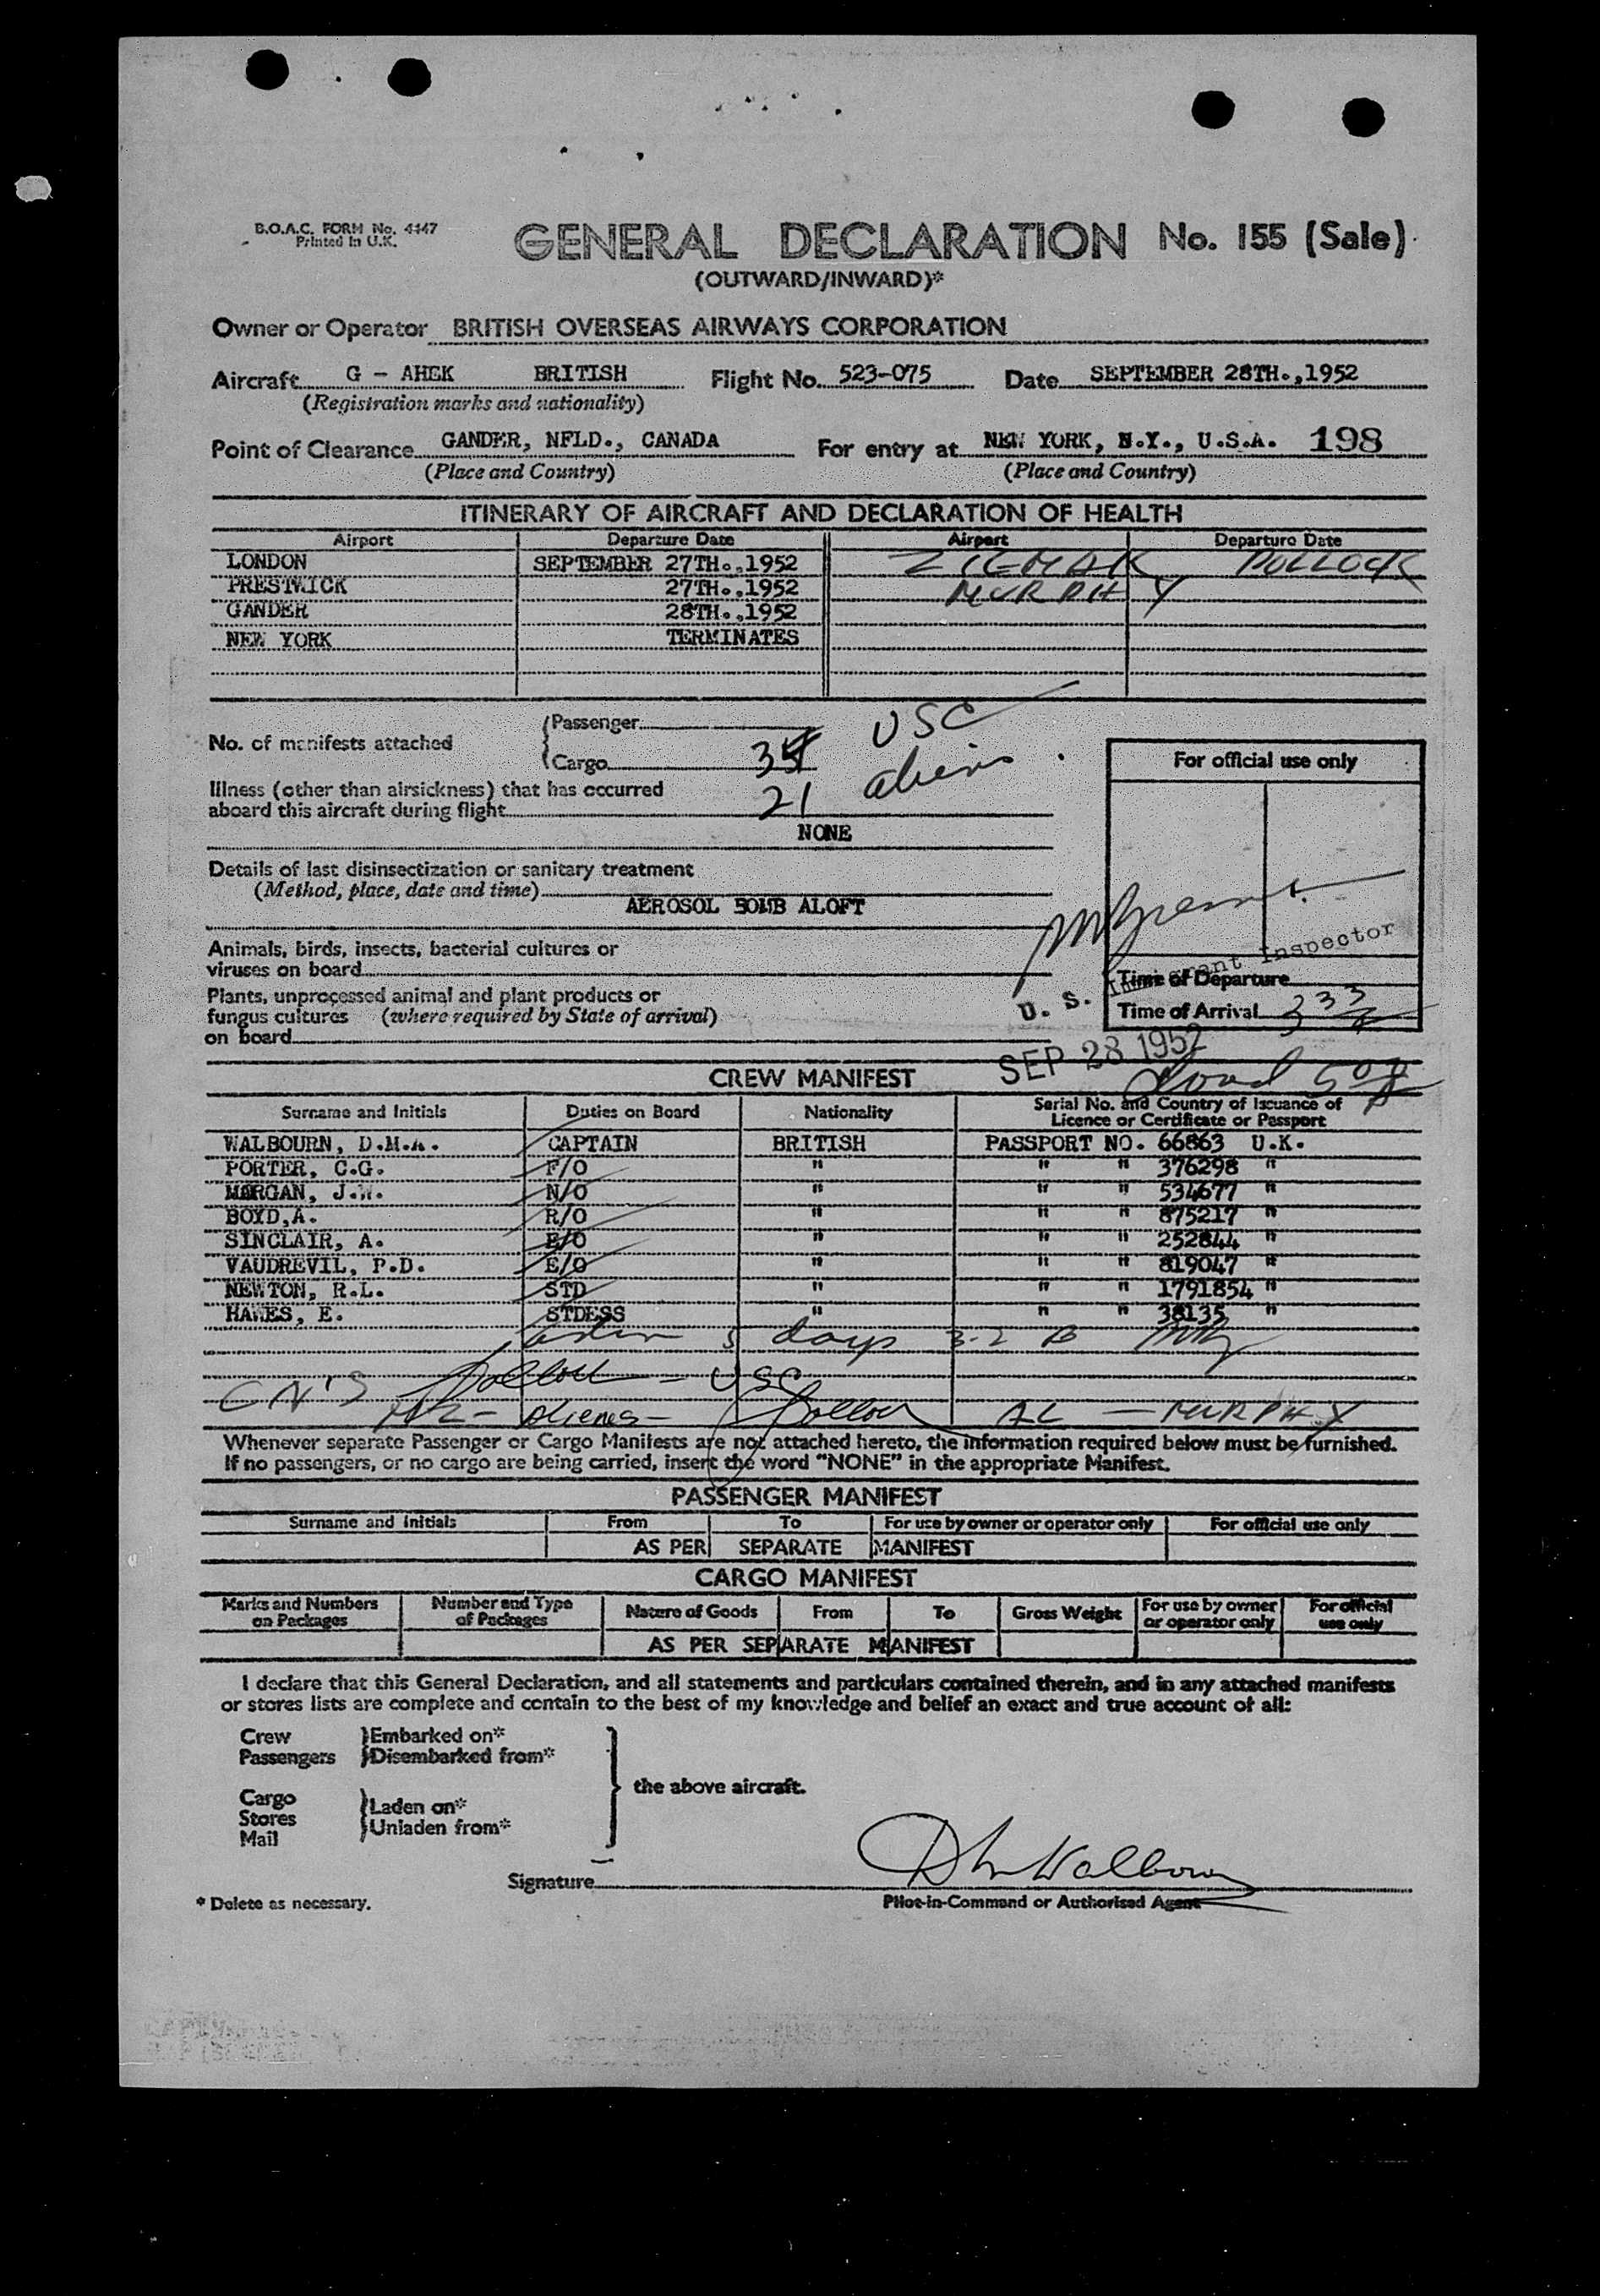 B.O.A.C. FORM No. 4447
Printed in U.K.
GENERAL DECLARATION No. 155 (Sale)
(OUTWARD/INWARD)*
Owner or Operator BRITISH OVERSEAS AIRWAYS CORPORATION
Aircraft G - AHEK BRITISH Flight No. 523-075 Date SEPTEMBER 28TH.,1952
(Registration marks and nationality)
Point of Clearance GANDER, NFLD., CANADA For entry at NEW YORK, N.Y., U.S.A. 198
(Place and Country) (Place and Country)
ITINERARY OF AIRCRAFT AND DECLARATION OF HEALTH
Airport Departure Date Airport Departure Date
LONDON SEPTEMBER 27TH.,1952 POLLOCK
PRESTWICK 27TH.,1952 MURPHY
GANDER 28TH.,1952
NEW YORK TERMINATES
No. of manifests attached
Passenger
Cargo
USC
21 aliens
Illness (other than airsickness) that has occurred
aboard this aircraft during flight
NONE
Details of last disinsectization or sanitary treatment
(Method, place, date and time)
AEROSOL BOMB ALOFT
Animals, birds, insects, bacterial cultures or
viruses on board
Plants, unprocessed animal and plant products or
fungus cultures (where required by State of arrival)
on board
For official use only
U. S. Immigrant Inspector
Time of Departure
Time of Arrival 333
SEP 28 1952
CREW MANIFEST
Surname and Initials Duties on Board Nationality Serial No. and Country of Issuance of
Licence or Certificate or Passport
WALBOURN, D.M.A. CAPTAIN BRITISH PASSPORT NO. 66863 U.K.
PORTER, C.G. F/O " " " 376298 "
MORGAN, J.W. N/O " " " 534677 "
BOYD,A. R/O " " " 875217 "
SINCLAIR, A. E/O " " " 252844 "
VAUDREVIL, P.D. E/O " " " 819047 "
NEWTON, R.L. STD " " " 1791854 "
HAWES, E. STDESS " " " 38135 "
5 days 3-2
USC
MURPHY
Whenever separate Passenger or Cargo Manifests are not attached hereto, the information required below must be furnished.
If no passengers, or no cargo are being carried, insert the word "NONE" in the appropriate Manifest.
PASSENGER MANIFEST
Surname and Initials From To For use by owner or operator only For official use only
AS PER SEPARATE MANIFEST
CARGO MANIFEST
Marks and Numbers on Packages Number and Type of Packages Nature of Goods From To Gross Weight For use by owner or operator only For official use only
AS PER SEPARATE MANIFEST
I declare that this General Declaration, and all statements and particulars contained therein, and in any attached manifests
or stores lists are complete and contain to the best of my knowledge and belief an exact and true account of all:
Crew Embarked on*
Passengers Disembarked from*
the above aircraft.
Cargo Laden on*
Stores Unladen from*
Mail
Signature D M Walbourn
* Delete as necessary. Pilot-in-Command or Authorised Agent